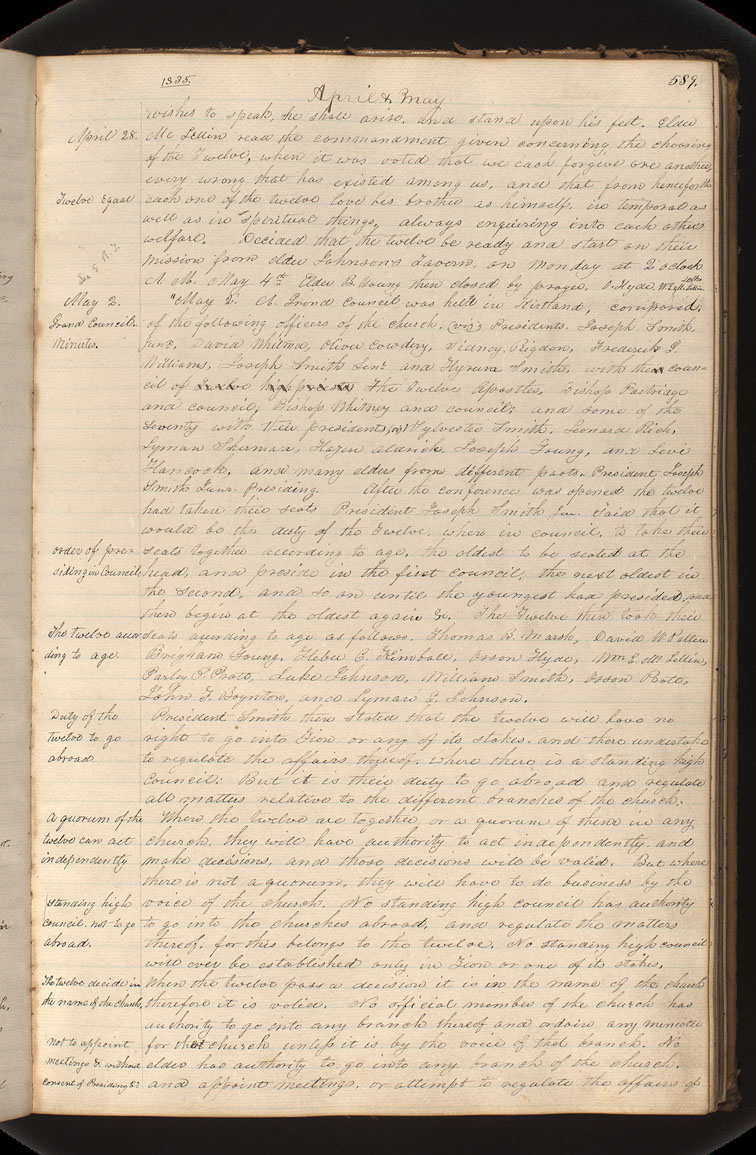 1835.
589.
April & May
wishes to speak, he shall arise, and stand upon his feet. Elder
April 28.
Mc Lellin read the commandment given concerning the choosing
of the Twelve; when it was voted that we each forgive one another,
every wrong that has existed among us, and that from henceforth
Twelve Equal
each one of the twelve love his brother as himself, in temporal as
well as in spiritual things, always enquiring into each others
welfare. Decided that the twelve be ready and start on their
mission from elder Johnson's Tavern, on Monday at 2 oclock
A. M. May 4th. Elder B. Young then closed by prayer. O. Hyde, W. E. Mc Lellin
clks
May 2.
"May 2. A Grand Council was held in Kirtland, composed,
Grand Council.
of the following officers of the church, (viz) Presidents. Joseph Smith
Minutes.
Junr., David Whitmer, Oliver Cowdery, Sidney Rigdon, Frederick G.
Williams, Joseph Smith Senr. and Hyrum Smith, with their coun-
cil of Twelve high priests The Twelve Apostles, Bishop Partridge
and council, Bishop Whitney and council; and some of the
Seventy with their presidents, (viz) Sylvester Smith, Leonard Rich,
Lyman Sherman, Hazen Aldrich, Joseph Young, and Levi
Hancock, and many elders from different parts. President Joseph
Smith Junr. Presiding. After the conference was opened the twelve
had taken their seats President Joseph Smith Jun. Said that it
would be the duty of the Twelve, where in council, to take their
order of pre-
seats together according to age, the oldest to be seated at the
siding in Council
head, and preside in the first council, the next oldest in
the second, and so on until the youngest had presided, and
then begin at the oldest again &c. The Twelve then took their
The twelve accor
seats according to age as follows. Thomas B. Marsh, David W. Patten
ding to age
Brigham Young, Heber C. Kimball, Orson Hyde, Wm E. Mc Lellin,
Parley P. Pratt, Luke Johnson, William Smith, Orson Pratt,
John F. Boynton, and Lyman E. Johnson.
Duty of the
President Smith then stated that the twelve will have no
twelve to go
right to go into Zion or any of its stakes, and there undertake
abroad
to regulate the affairs thereof, where there is a standing high
Council: But it is their duty to go abroad and regulate
all matters relative to the different branches of the church.
A quorum of the
When the twelve are together, or a quorum of them in any
twelve can act
church, they will have authority to act independently, and
independently
make decisions, and those decisions will be valid. But where
there is not a quorum, they will have to do business by the
standing high
voice of the church. No standing high council has authority
council not to go
to go into the churches abroad, and regulate the matters
abroad.
thereof, for this belongs to the twelve. No standing high council
will ever be established only in Zion or one of its stakes.
The twelve decide in
When the twelve pass a decision it is in the name of the church
the name of the church.
therefore it is valid. No official member of the church has
authority to go into any branch thereof and ordain any minister
not to appoint
for that church unless it is by the voice of that branch. No
meetings &c without
elder has authority to go into any branch of the church.
consent of Presiding Er
and appoint meetings, or attempt to regulate the affairs of